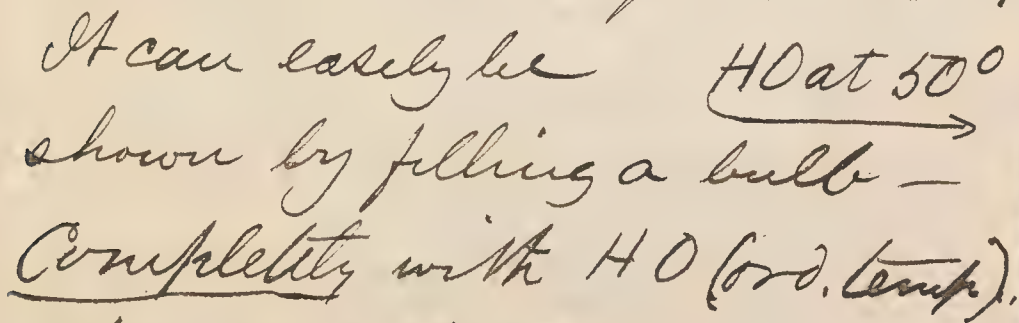 It can easily be HO at 50°
shown by filling a bulb —
Completely with HO (ord. temp).